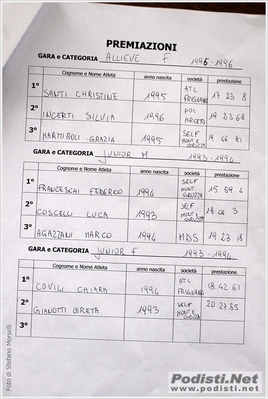 PREMIAZIONI
GARA e CATEGORIA ALLIEVE F 1995-1996
Cognome e Nome Atleta anno nascita società prestazione
1° SANTI CHRISTINE 1995 ATL FRIGNANO 17 23 8
2° INCERTI SILVIA 1996 POL ARCETO 19 23 68
3° MARMIROLI GRAZIA 1995 SELF 19 66 81
GARA e CATEGORIA JUNIOR M 1993-1994
Cognome e Nome Atleta anno nascita società prestazione
1° FRANCESCHI FEDERICO 1994 SELF 15 59 4
2° COSCELLI LUCA 1993 SELF 18 06 3
3° AGAZZANI MARCO 1994 MDS 19 23 18
GARA e CATEGORIA JUNIOR F 1993-1994
Cognome e Nome Atleta anno nascita società prestazione
1° COVILI CHIARA 1994 ATL FRIGNANO 18 42 61
2° GIANOTTI GRETA 1993 SELF 20 27 85
3°
Foto di Stefano Morselli
Podisti.Net
www.podisti.net